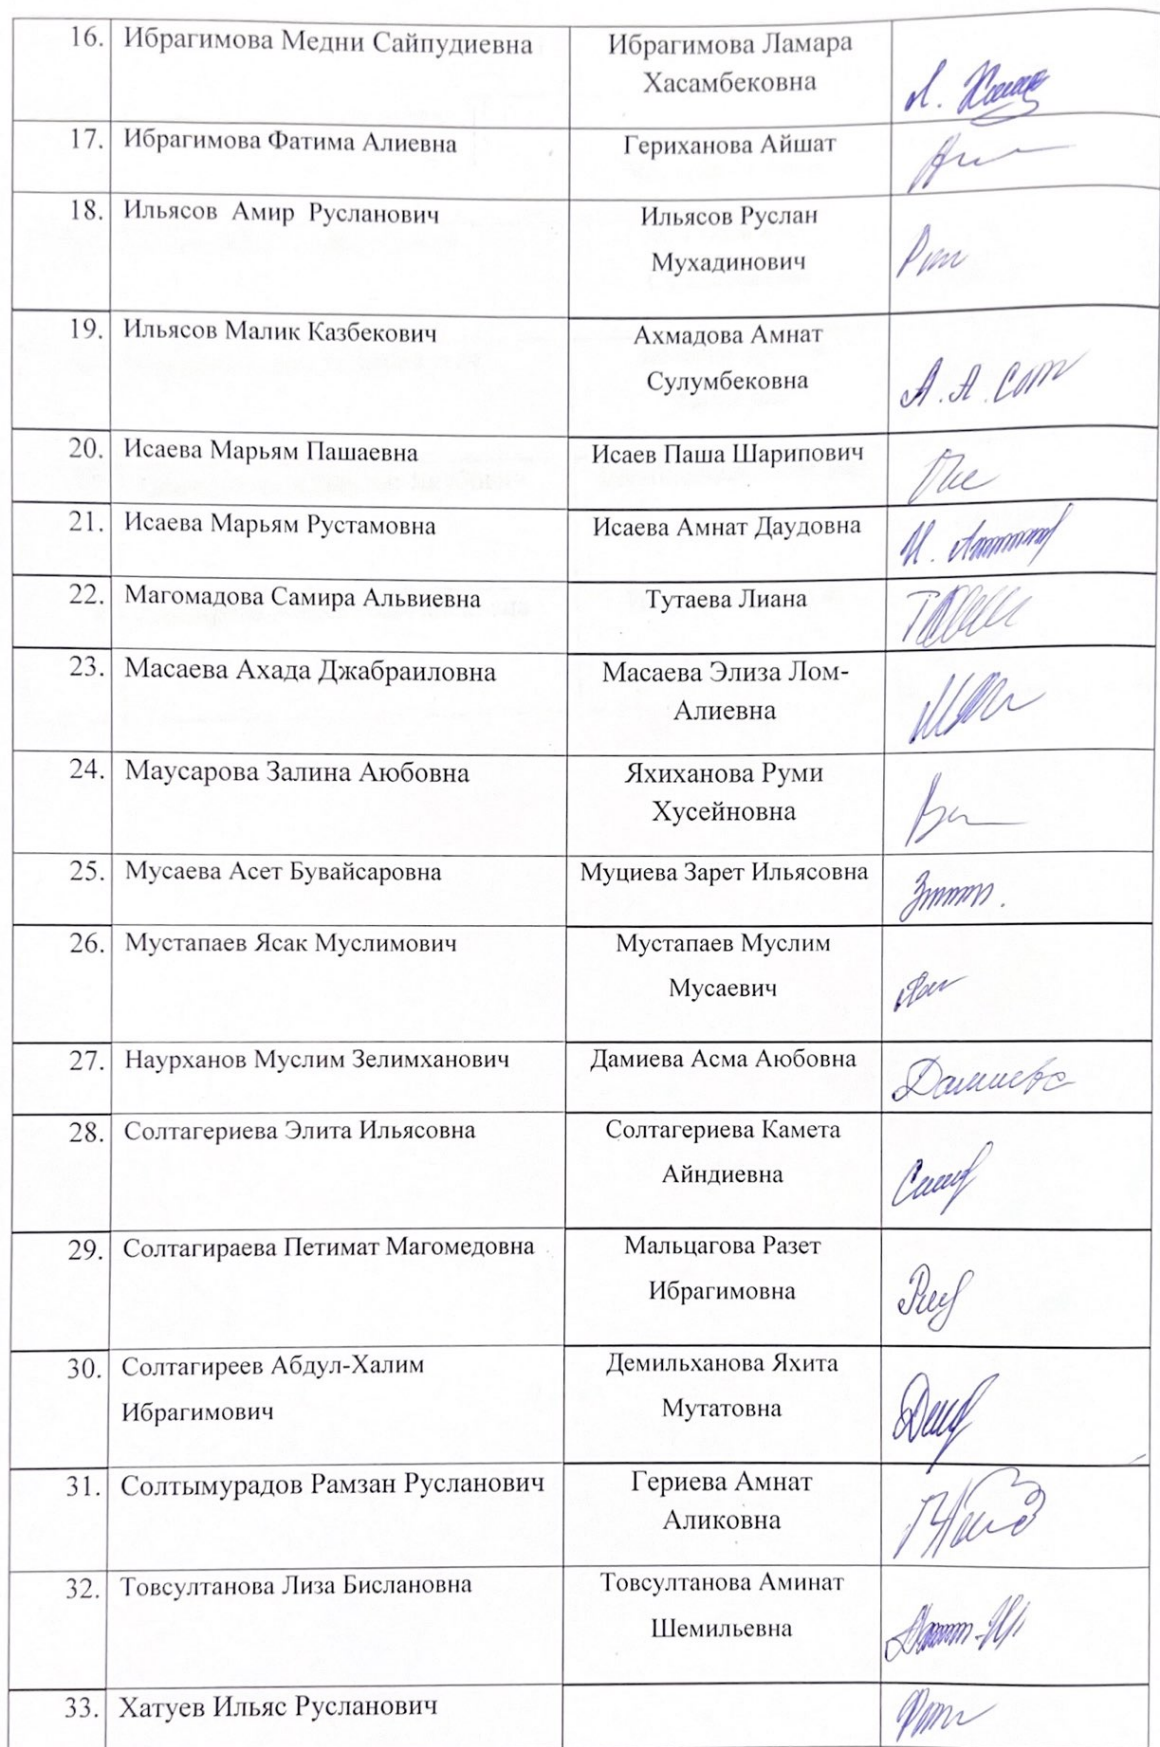 16. Ибрагимова Медни Сайпудиевна Ибрагимова Ламара
Хасамбековна
17. Ибрагимова Фатима Алиевна Гериханова Айшат
18. Ильясов Амир Русланович Ильясов Руслан
Мухадинович
19. Ильясов Малик Казбекович Ахмадова Амнат
Сулумбековна
20. Исаева Марьям Пашаевна Исаев Паша Шарипович
21. Исаева Марьям Рустамовна Исаева Амнат Даудовна
22. Магомадова Самира Альвиевна Тутаева Лиана
23. Масаева Ахада Джабраиловна Масаева Элиза Лом-
Алиевна
24. Маусарова Залина Аюбовна Яхиханова Руми
Хусейновна
25. Мусаева Асет Бувайсаровна Муциева Зарет Ильясовна
26. Мустапаев Ясак Муслимович Мустапаев Муслим
Мусаевич
27. Наурханов Муслим Зелимханович Дамиева Асма Аюбовна Дамиева
28. Солтагериева Элита Ильясовна Солтагериева Камета
Айндиевна
29. Солтагираева Петимат Магомедовна Мальцагова Разет
Ибрагимовна
30. Солтагиреев Абдул-Халим Демильханова Яхита
Ибрагимович Мутатовна
31. Солтымурадов Рамзан Русланович Гериева Амнат
Аликовна
32. Товсултанова Лиза Бислановна Товсултанова Аминат
Шемильевна
33. Хатуев Ильяс Русланович